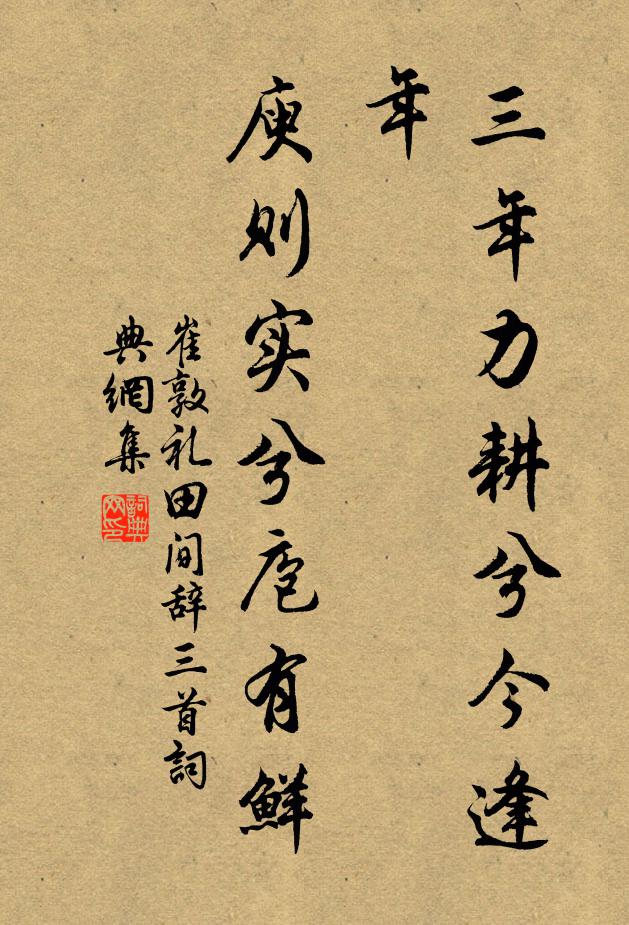 三年力耕兮今逢
年
庾则实兮庖有鲜
崔敦礼田间辞三首詞
典網集
詞典网印